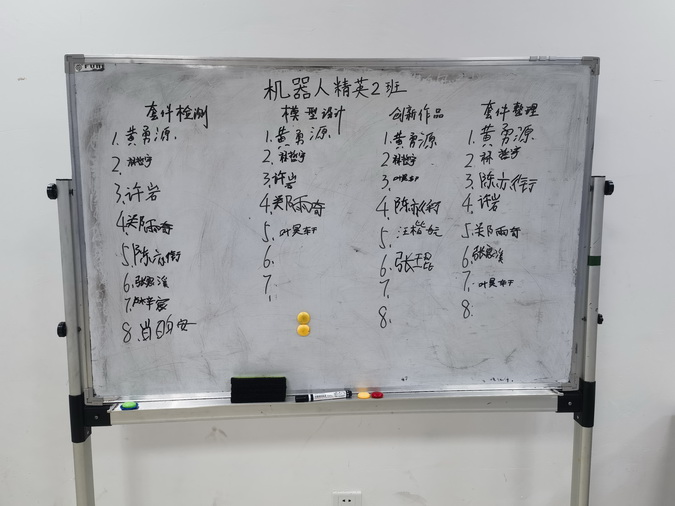 机器人精英2班
套件检测
1.黄勇源
2.林哲宇
3.许岩
4.关阝雨奇
5.陈亦衔
6.张恩溪
7.
8.肖昀安
模型设计
1.黄勇源
2.林哲宇
3.许岩
4.关阝雨奇
5.叶昊车干
6.
7.
创新作品
1.黄勇源
2.林哲宇
3.叶昊车干
4.陈亦衔
5.汪楷
6.张
7.
8.
套件整理
1.黄勇源
2.林哲宇
3.陈亦衔
4.许岩
5.关阝雨奇
6.张恩溪
7.叶昊车干
8.